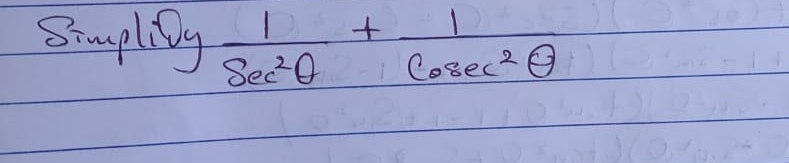 Simplify 1/Sec²θ + 1/Cosec²θ